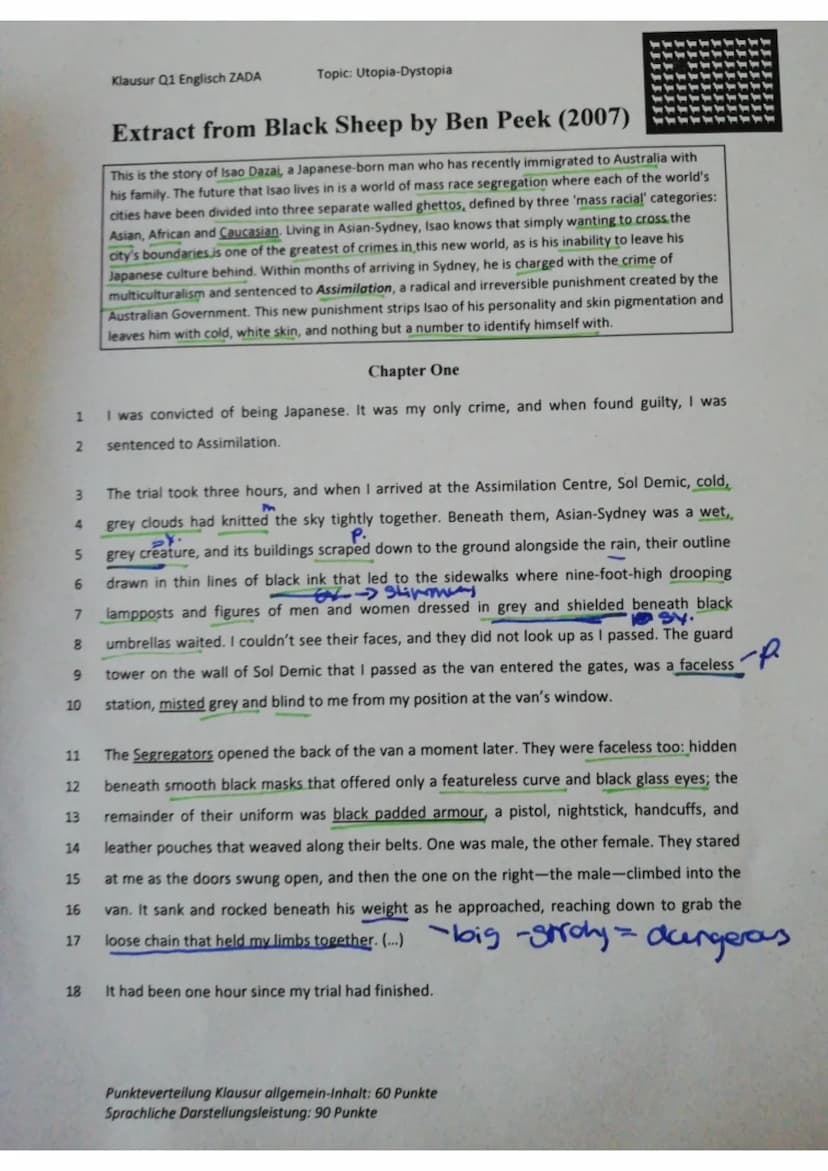 Klausur Q1 Englisch ZADA Topic: Utopia-Dystopia
Extract from Black Sheep by Ben Peek (2007)
This is the story of Isao Dazai, a Japanese-born man who has recently immigrated to Australia with
his family. The future that Isao lives in is a world of mass race segregation where each of the world's
cities have been divided into three separate walled ghettos, defined by three 'mass racial' categories:
Asian, African and Caucasian. Living in Asian-Sydney, Isao knows that simply wanting to cross the
city's boundaries is one of the greatest of crimes in this new world, as is his inability to leave his
Japanese culture behind. Within months of arriving in Sydney, he is charged with the crime of
multiculturalism and sentenced to Assimilation, a radical and irreversible punishment created by the
Australian Government. This new punishment strips Isao of his personality and skin pigmentation and
leaves him with cold, white skin, and nothing but a number to identify himself with.
Chapter One
1 I was convicted of being Japanese. It was my only crime, and when found guilty, I was
2 sentenced to Assimilation.
3 The trial took three hours, and when I arrived at the Assimilation Centre, Sol Demic, cold,
m
4 grey clouds had knitted the sky tightly together. Beneath them, Asian-Sydney was a wet,
p.
5 grey creature, and its buildings scraped down to the ground alongside the rain, their outline
6 drawn in thin lines of black ink that led to the sidewalks where nine-foot-high drooping
7 lampposts and figures of men and women dressed in grey and shielded beneath black
sy.
8 umbrellas waited. I couldn't see their faces, and they did not look up as I passed. The guard
9 tower on the wall of Sol Demic that I passed as the van entered the gates, was a faceless -p.
10 station, misted grey and blind to me from my position at the van's window.
11 The Segregators opened the back of the van a moment later. They were faceless too: hidden
12 beneath smooth black masks that offered only a featureless curve and black glass eyes; the
13 remainder of their uniform was black padded armour, a pistol, nightstick, handcuffs, and
14 leather pouches that weaved along their belts. One was male, the other female. They stared
15 at me as the doors swung open, and then the one on the right—the male—climbed into the
16 van. It sank and rocked beneath his weight as he approached, reaching down to grab the
17 loose chain that held my limbs together. (...) -big = dangerous
18 It had been one hour since my trial had finished.
Punkteverteilung Klausur allgemein-Inhalt: 60 Punkte
Sprachliche Darstellungsleistung: 90 Punkte